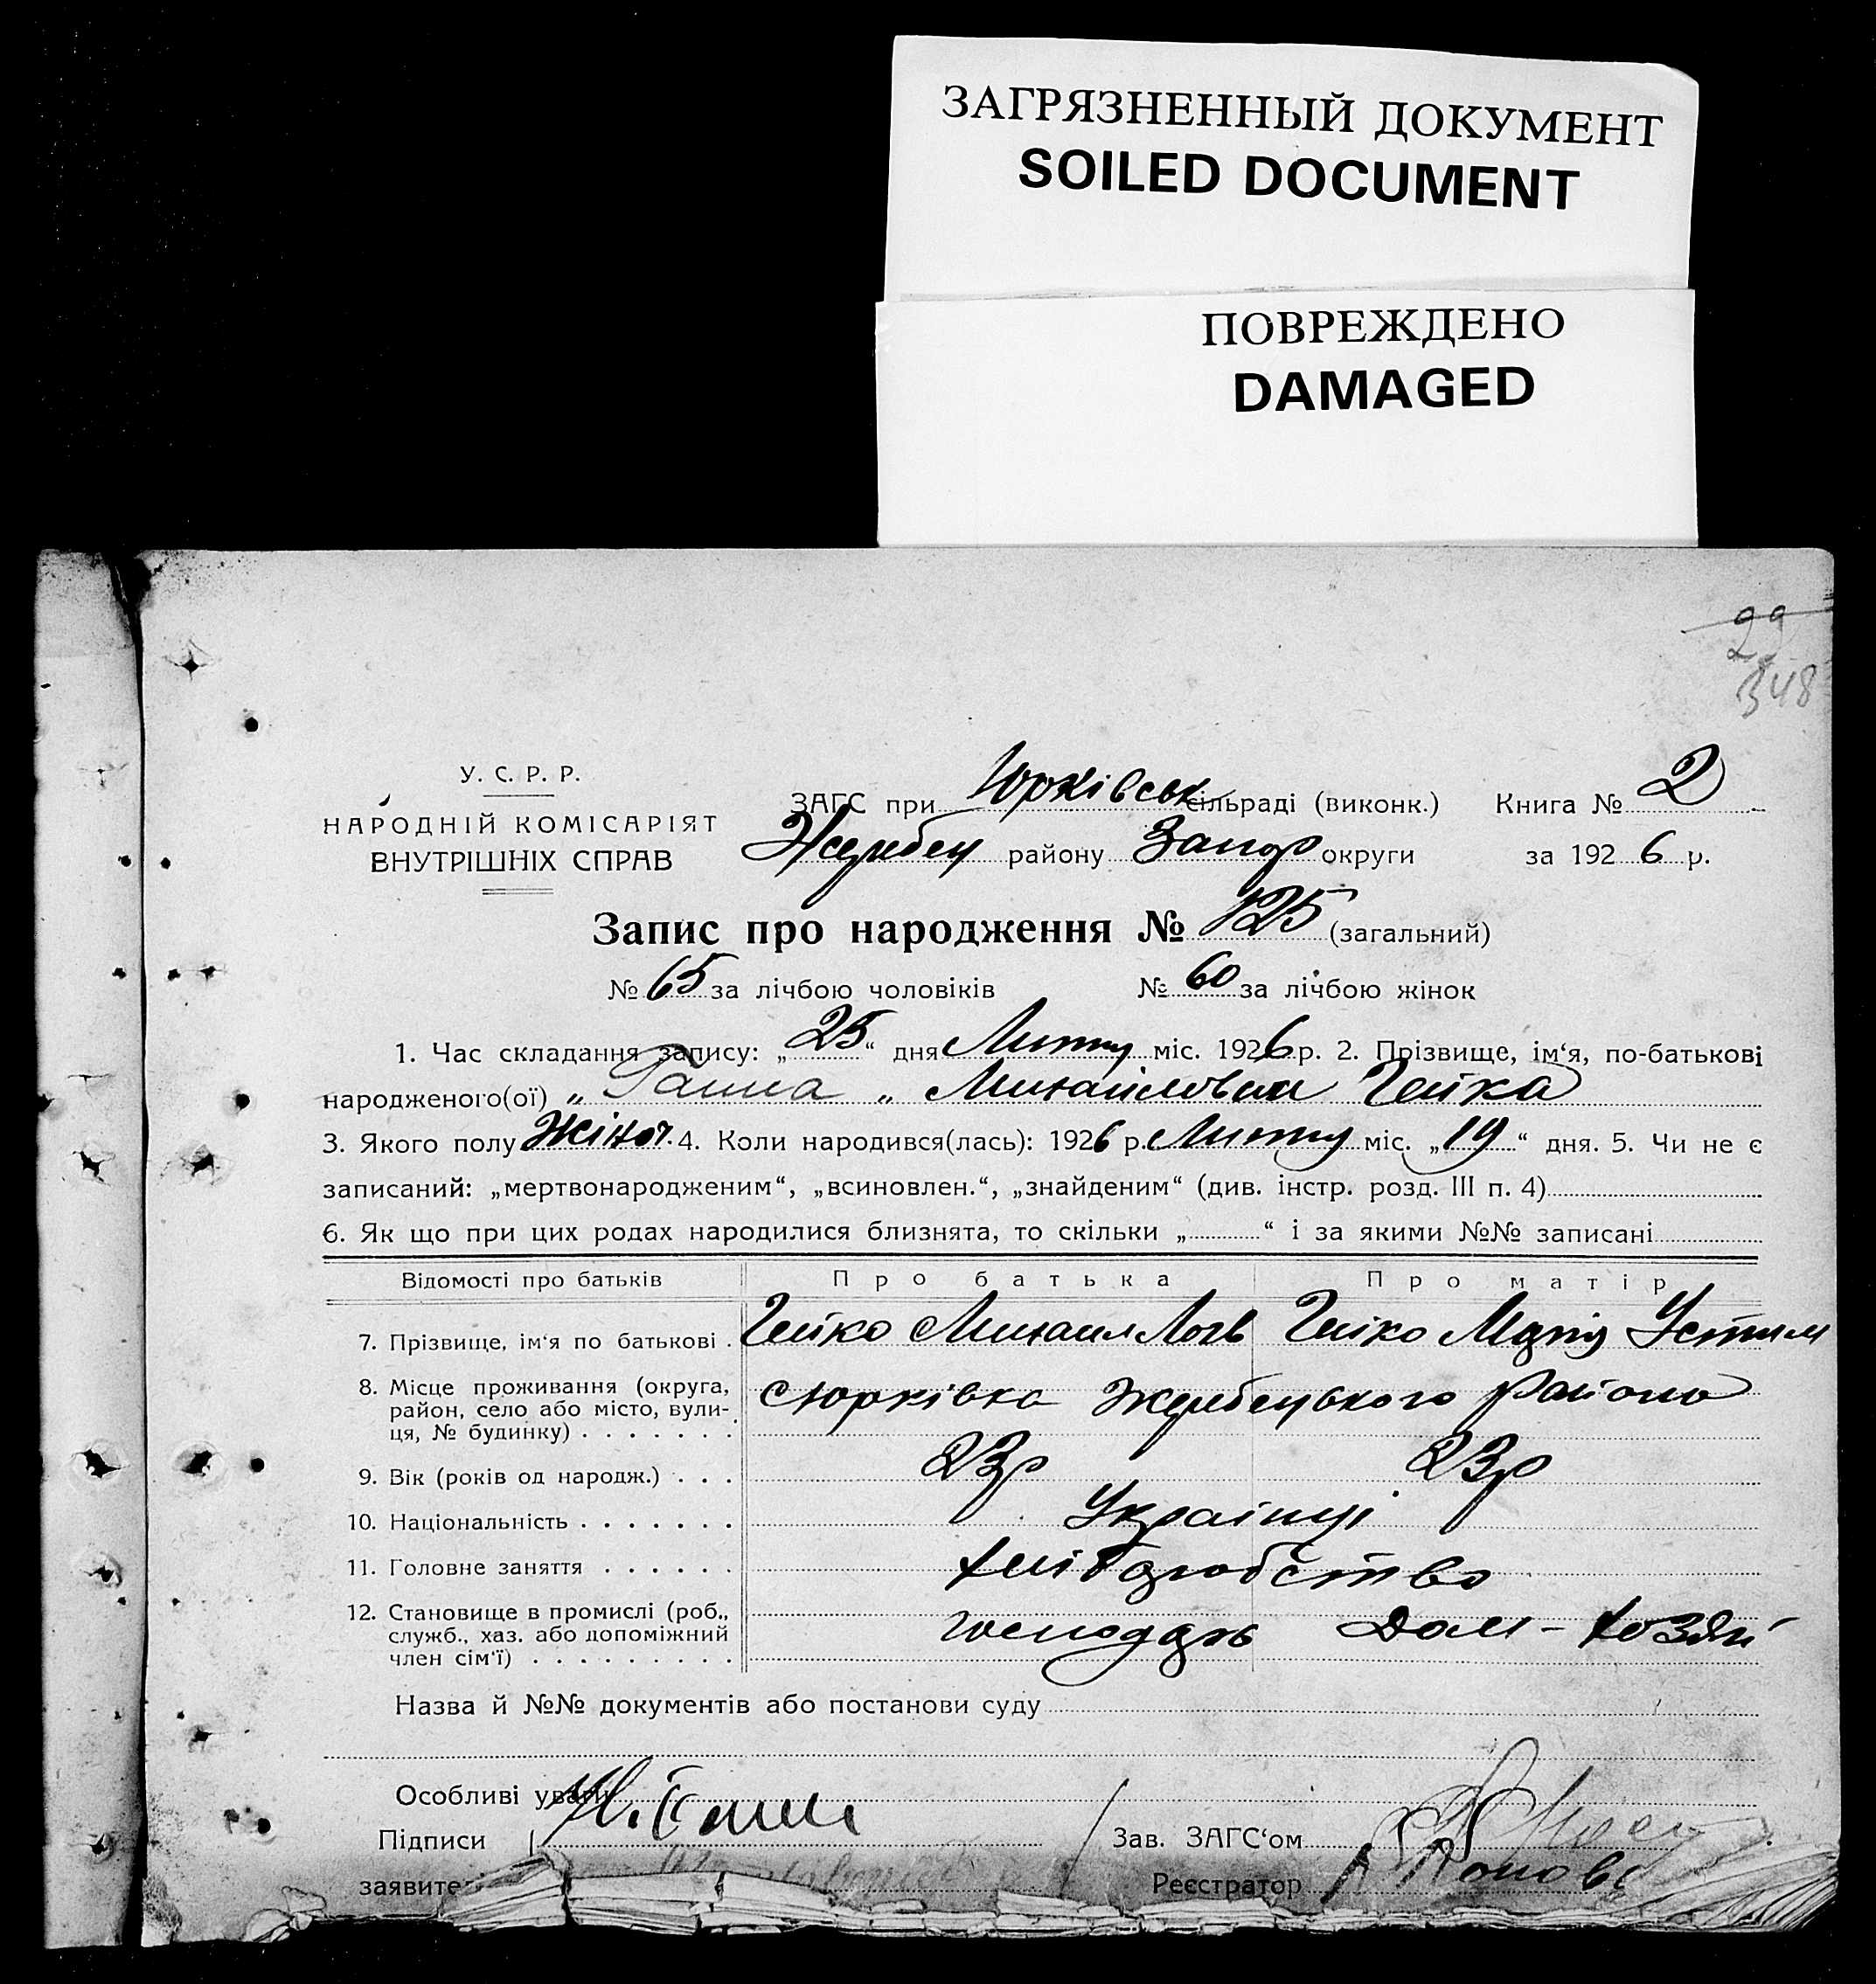 ЗАГРЯЗНЕННЫЙ ДОКУМЕНТ
SOILED DOCUMENT
ПОВРЕЖДЕНО
DAMAGED
22
348
У. С. Р. Р.
НАРОДНІЙ КОМІСАРІЯТ
ВНУТРІШНІХ СПРАВ
ЗАГС при Юрківськ сільраді (виконк.) Книга № 2
Жеребец району Запор округи за 1926 р.
Запис про народження № 125 (загальний)
№ 65 за лічбою чоловіків № 60 за лічбою жінок
1. Час складання запису: „25“ дня Лютту міс. 1926 р. 2. Прізвище, ім‘я, по-батькові
народженого(ої) „Ганна„ Михайловна Гейка
3. Якого полу Жіноч. 4. Коли народився(лась): 1926 р. Лютту міс. „19“ дня. 5. Чи не є
записаний: „мертвонародженим“, „всиновлен.“, „знайденим“ (див. інстр. розд. III п. 4)
6. Як що при цих родах народилися близнята, то скільки „ “ і за якими №№ записані
Відомості про батьків Про батька Про матір
7. Прізвище, ім‘я по батькові . Гейко Михаил Логв Гейко Марія Устим
8. Місце проживання (округа, район, село або місто, вулиця, № будинку) . . . . . . . с Юрківка Жеребецького району
9. Вік (років од народж.) . . . 23р 23р
10. Національність . . . . . . . Українці
11. Головне заняття . . . . . . Хліборобство
12. Становище в промислі (роб., служб., хаз. або допоміжний член сім‘ї) . . . . . . . . . господарь Дом-хозяй
Назва й №№ документів або постанови суду
Особливі уваги
Підписи Зав. ЗАГС‘ом
заявите Реєстратор